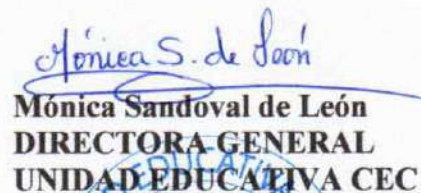 Mónica S. de León
Mónica Sandoval de León
DIRECTORA GENERAL
UNIDAD EDUCATIVA CEC
EDUCATIVA